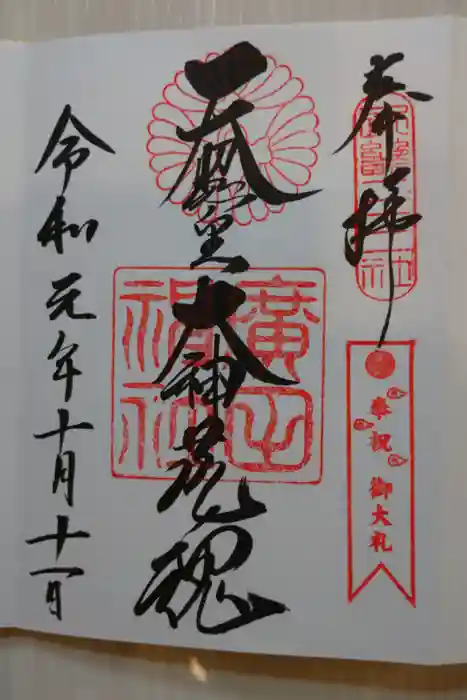 奉拝
奉祝 御大礼
天照皇大神荒魂
廣田
神社
令和元年十月十一日